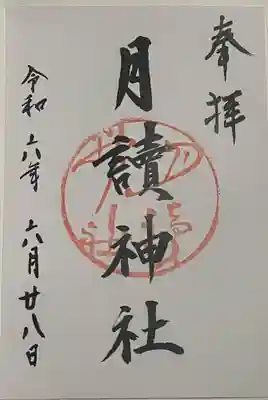 奉拝
月讀神社
令和六年 六月廿八日